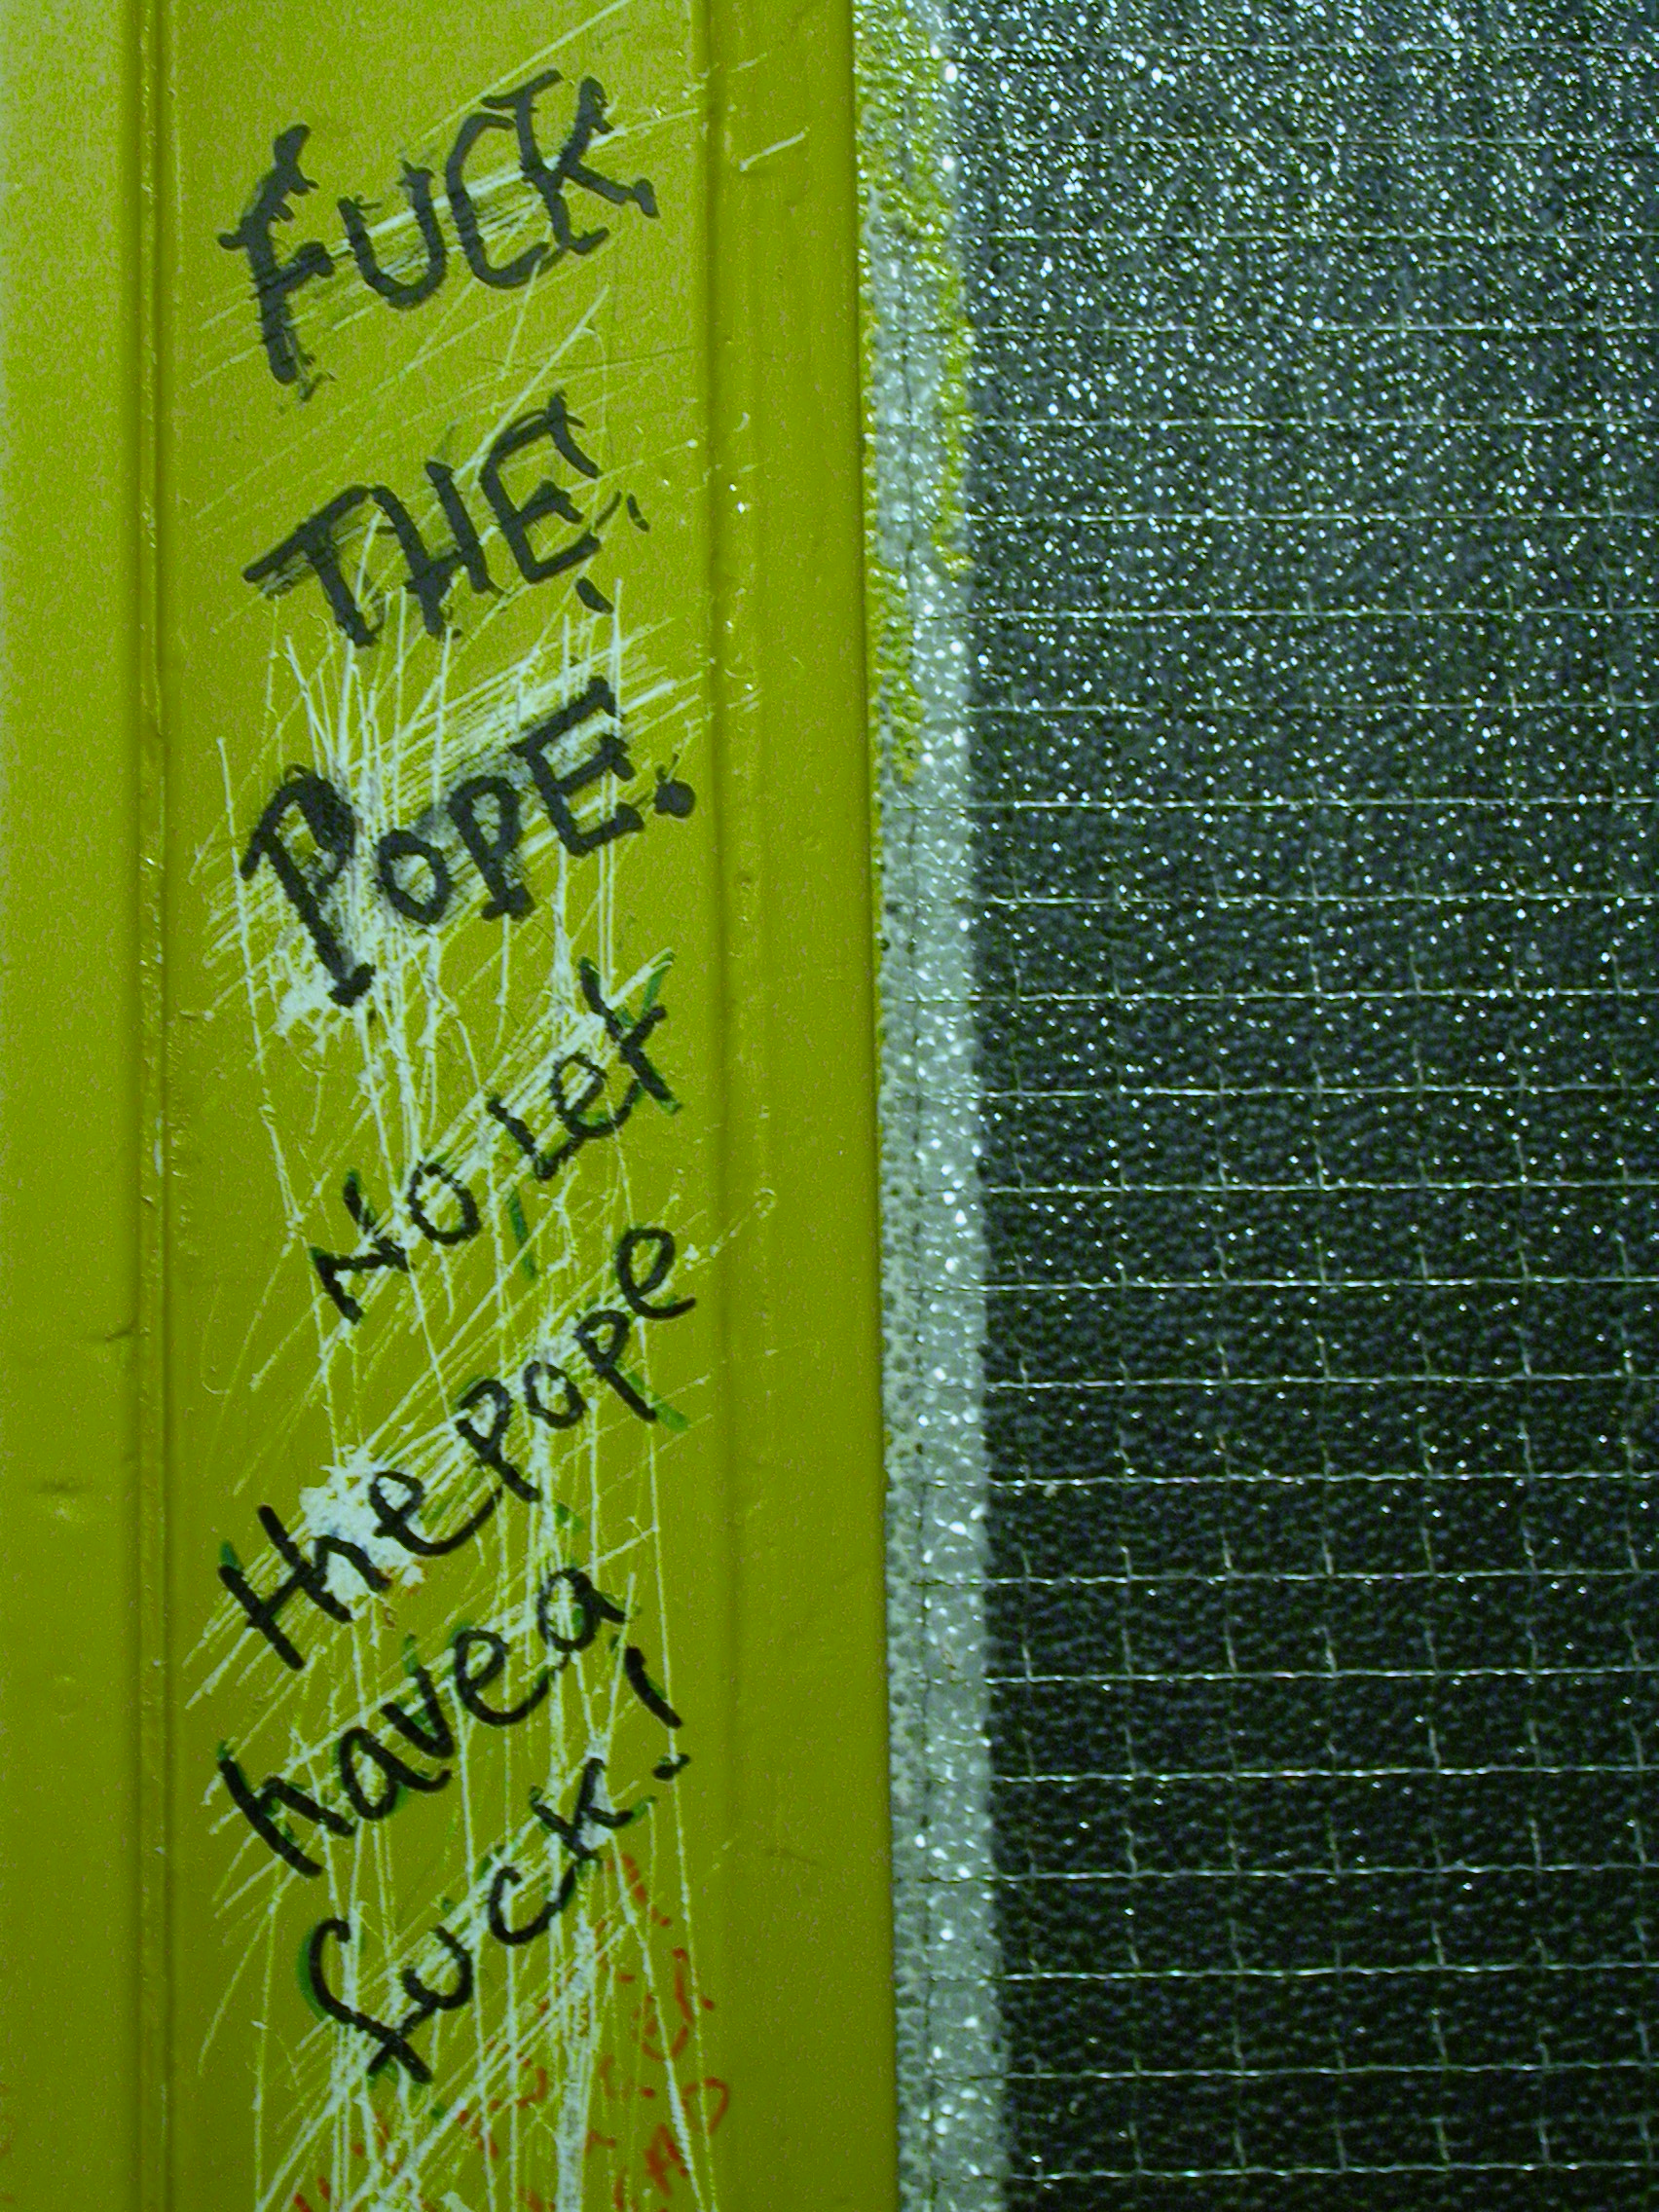 FUCK
THE
POPE.
No Let
the pope
have a
fuck!